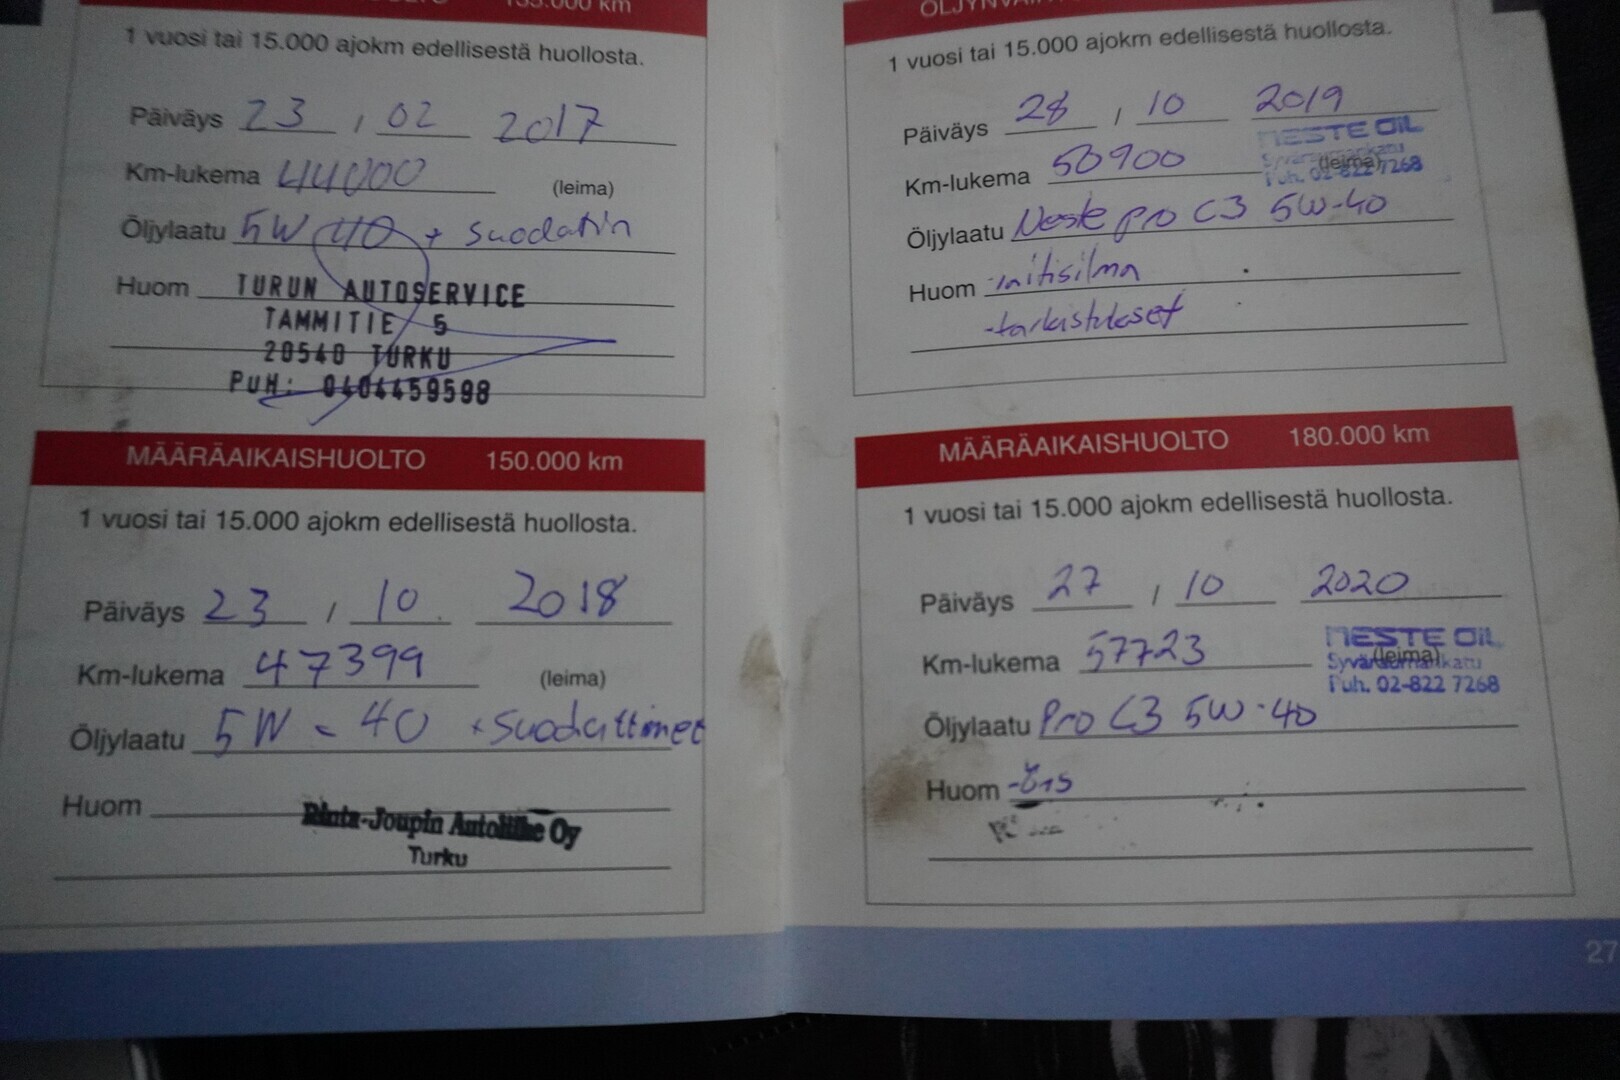 135.000 km
1 vuosi tai 15.000 ajokm edellisestä huollosta.
Päiväys 23 / 02 2017
Km-lukema 44000 (leima)
Öljylaatu 5W 40 + suodatin
Huom TURUN AUTOSERVICE
TAMMITIE 5
20540 TURKU
PUH: 0404459598
MÄÄRÄAIKAISHUOLTO 150.000 km
1 vuosi tai 15.000 ajokm edellisestä huollosta.
Päiväys 23 / 10 2018
Km-lukema 47399 (leima)
Öljylaatu 5W - 40 + Suodattimet
Huom
Rinta-Joupin Autoliike Oy
Turku
1 vuosi tai 15.000 ajokm edellisestä huollosta.
Päiväys 28 / 10 2019
NESTE OIL
Km-lukema 50900 (leima)
Puh. 02-822 7268
Öljylaatu Neste pro C3 5W-40
Huom
-tarkistukset
MÄÄRÄAIKAISHUOLTO 180.000 km
1 vuosi tai 15.000 ajokm edellisestä huollosta.
Päiväys 27 / 10 2020
NESTE OIL
Km-lukema 57723 (leima)
Puh. 02-822 7268
Öljylaatu Pro C3 5W-40
Huom
27